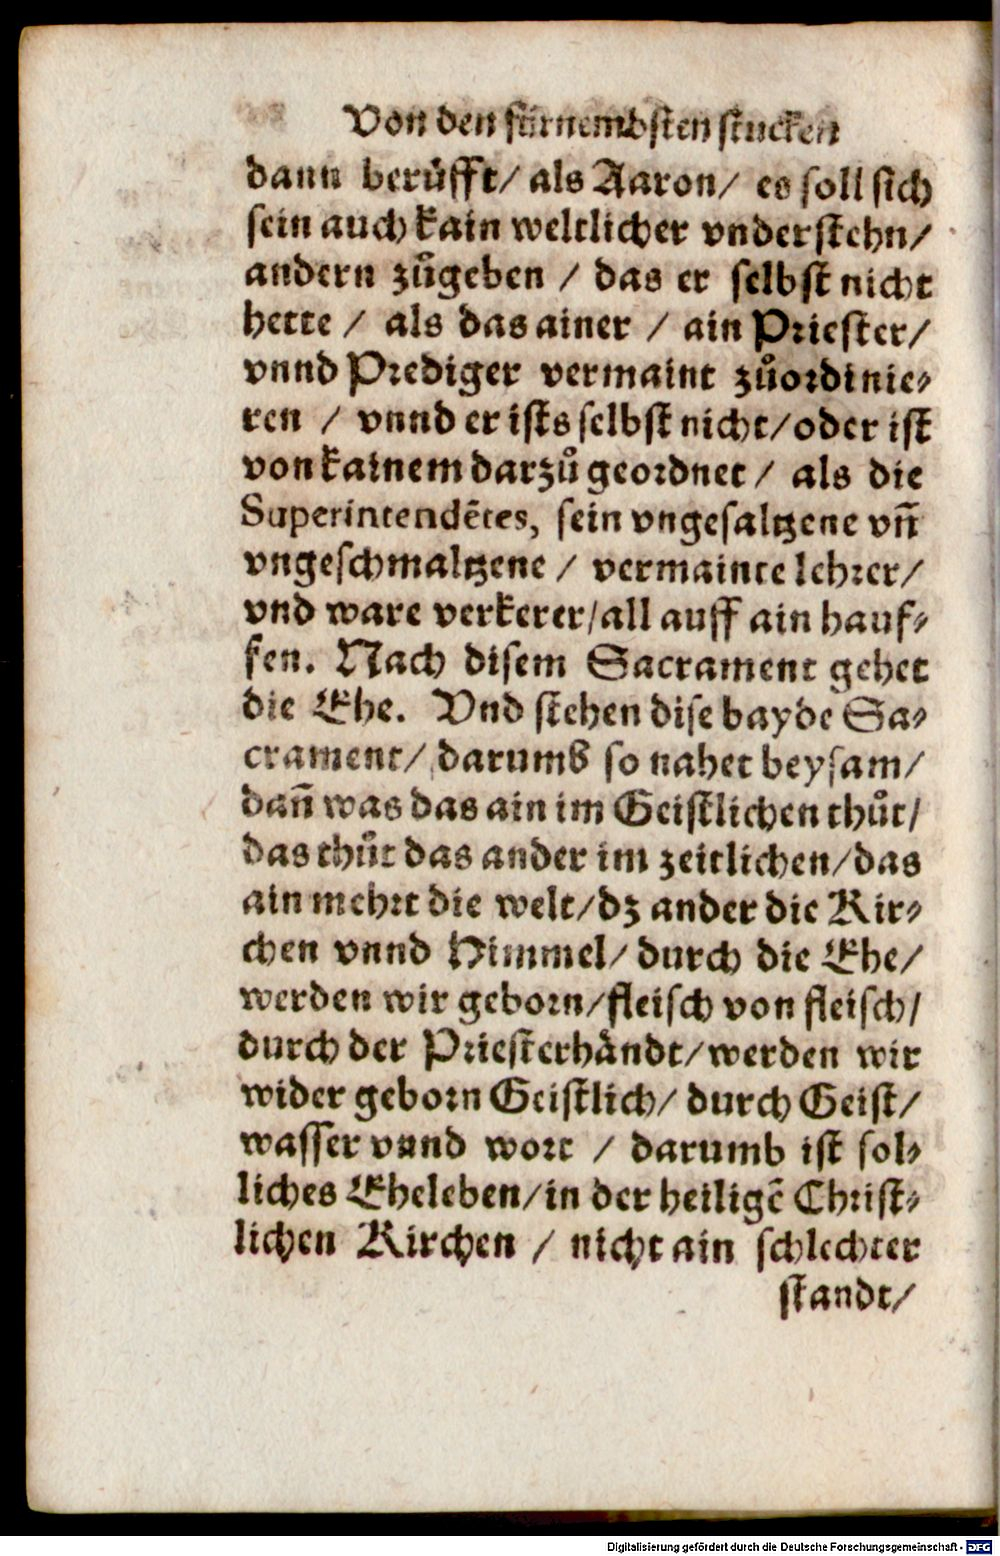 Von den fürnembsten stucken
dann berůfft/ als Aaron/ es soll sich
sein auch kain weltlicher vnderstehn/
andern zůgeben / das er selbst nicht
hette / als das ainer / ain Priester/
vnnd Prediger vermaint zůordinie-
ren / vnnd er ists selbst nicht/oder ist
von kainem darzů geordnet / als die
Superintendētes, sein vngesaltzene vñ
vngeschmaltzene / vermainte lehrer/
vnd ware verkerer/all auff ain hauf-
fen. Nach disem Sacrament gehet
die Ehe. Vnd stehen dise bayde Sa-
crament/ darumb so nahet beysam/
dañ was das ain im Geistlichen thůt/
das thůt das ander im zeitlichen/das
ain mehrt die welt/dz ander die Kir-
chen vnnd Himmel/ durch die Ehe/
werden wir geborn/fleisch von fleisch/
durch der Priesterhåndt/werden wir
wider geborn Geistlich/ durch Geist/
wasser vnnd wort / darumb ist sol-
liches Eheleben/in der heiligē Christ-
lichen Kirchen / nicht ain schlechter
standt/
Digitalisierung gefördert durch die Deutsche Forschungsgemeinschaft - DFG